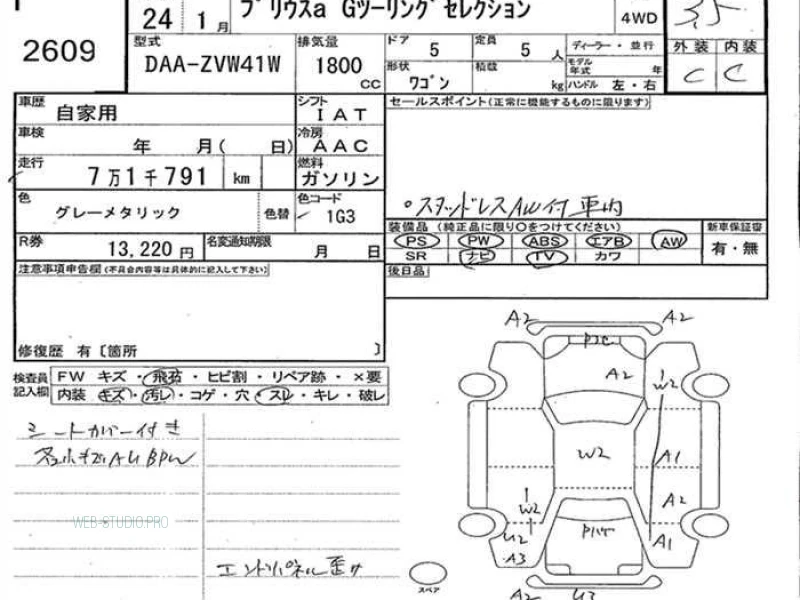 24 1月 プリウスa Gツーリングセレクション 4WD 3.5
2609
型式 DAA-ZVW41W 排気量 1800 CC ドア 5 定員 5 人 ディーラー・並行 外装 内装
形状 ワゴン 積載 kg モデル年式 年 ハンドル 左・右 C C
車歴 自家用 シフト IAT セールスポイント(正常に機能するものに限ります)
車検 年 月( 日) 冷房 AAC
走行 7万1千791 km 燃料 ガソリン
色 グレーメタリック 色替 色コード 1G3 スタッドレスAW付 車内
R券 13,220 円 名変通知期限 月 日 装備品 (純正品に限り○をつけてください) 新車保証書
PS PW ABS エアB AW 有・無
SR ナビ TV カワ
注意事項申告欄(不具合内容等は具体的に記入して下さい) 後日品
修復歴 有〔箇所 〕
検査員記入欄 FW キズ・飛石・ヒビ割・リペア跡・×要
内装 キズ・汚レ・コゲ・穴・スレ・キレ・破レ
シートカバー付き
WEB-STUDIO.PRO
エンドパネル歪み
A2 A2
A2 W2
W2 A1
W2 A2
U2 A1
A3
スペア A2 U3